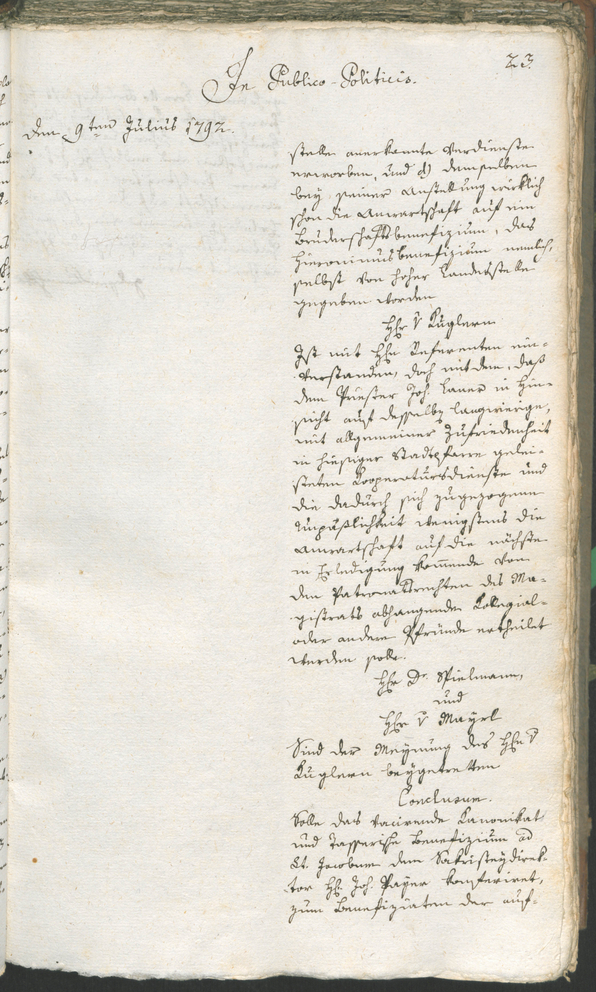 23.
In Publico-Politicis.
den 9ten Julius 1792.
stelle anerkannte Verdienste
erworben, und d) demselben
bey seiner Anstellung wirklich
schon die Anwartschaft auf ein
Bruderschaftsbenefizium, das
Hieronimusbenefizium nemlich,
selbst von hoher Landesstelle
gegeben worden
Hr v Kuglern
Ist mit Hrn Referenten ein-
verstanden, doch mit dem, daß
dem Priester Joh. Laner in Hin-
sicht auf desselben langwierige,
mit allgemeiner Zufriedenheit
in hiesiger Stadtpfarre gelei-
steten Kooperatursdienste und
die dadurch sich zugezogene
Unpäßlichkeit wenigstens die
Anwartschaft auf die nächste
in Erledigung kommende von
den Patronatsrechten des Ma-
gistrats abhangende Kollegial-
oder andere Pfründe ertheilet
werden solle.
Hr Dr. Spielmann,
und
Hr v Mayrl
Sind der Meynung des Hrn v
Kuglern beygetretten
Conclusum.
Solle das vacirende Kanonikat
und Tasserische Benefizium ad
St. Jacobum dem Sakristeydirek-
tor Hr. Joh. Payer konferiret,
zum Benefiziaten der auf-